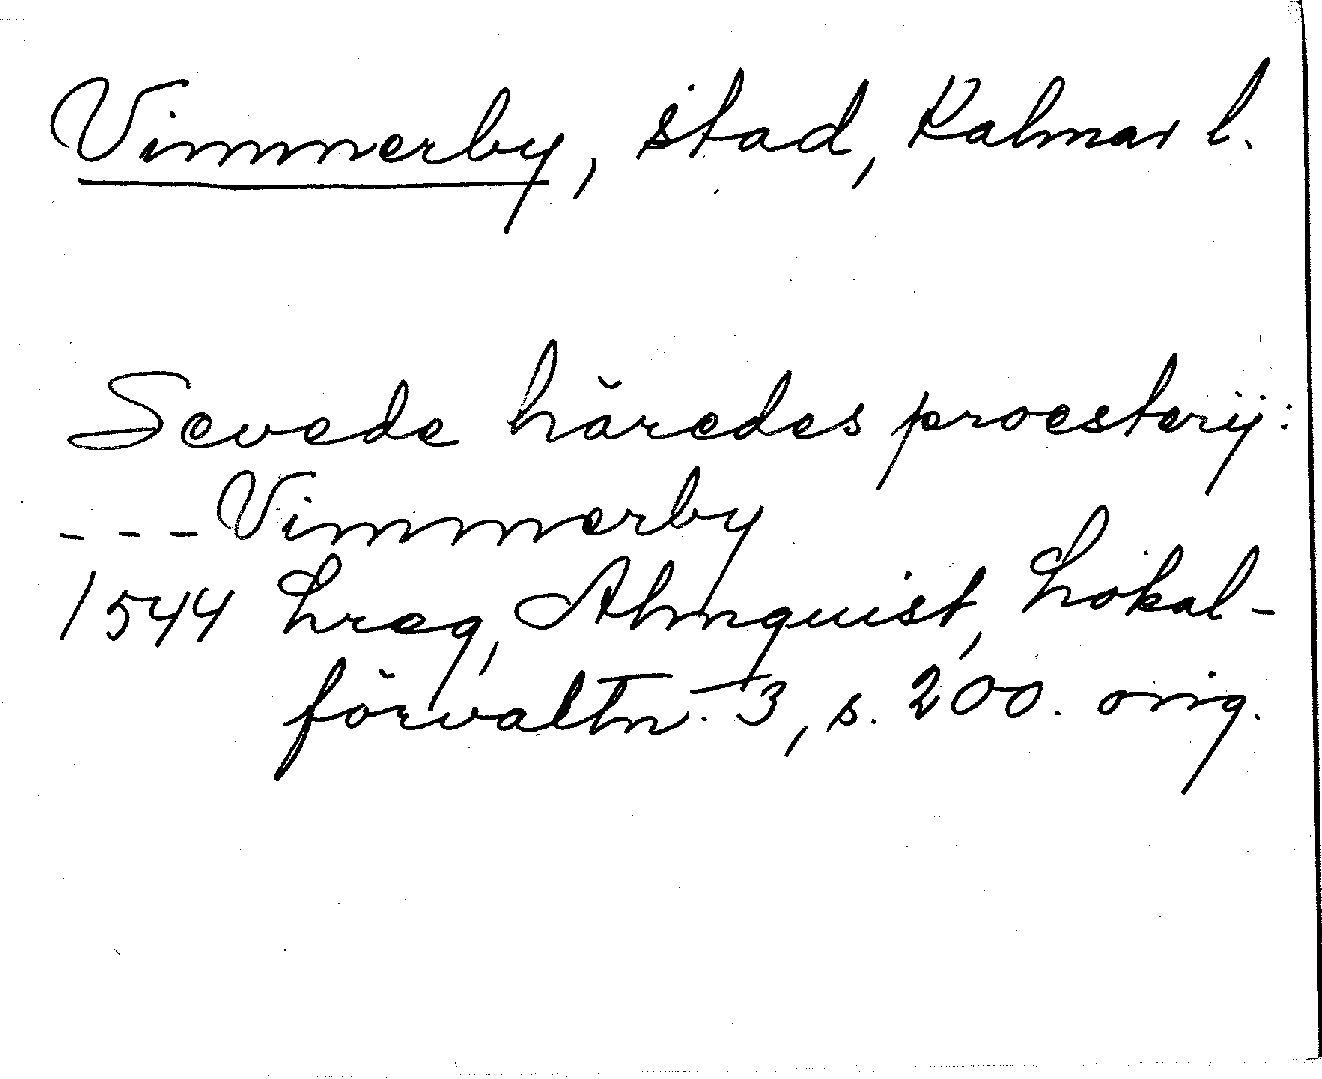 Vimmerby, stad, Kalmar l.
Sevede häredes proesterij:
--- Vimmerby
1544 Lreg, Almquist, Lokal-
förvaltn. 3, s. 200. orig.